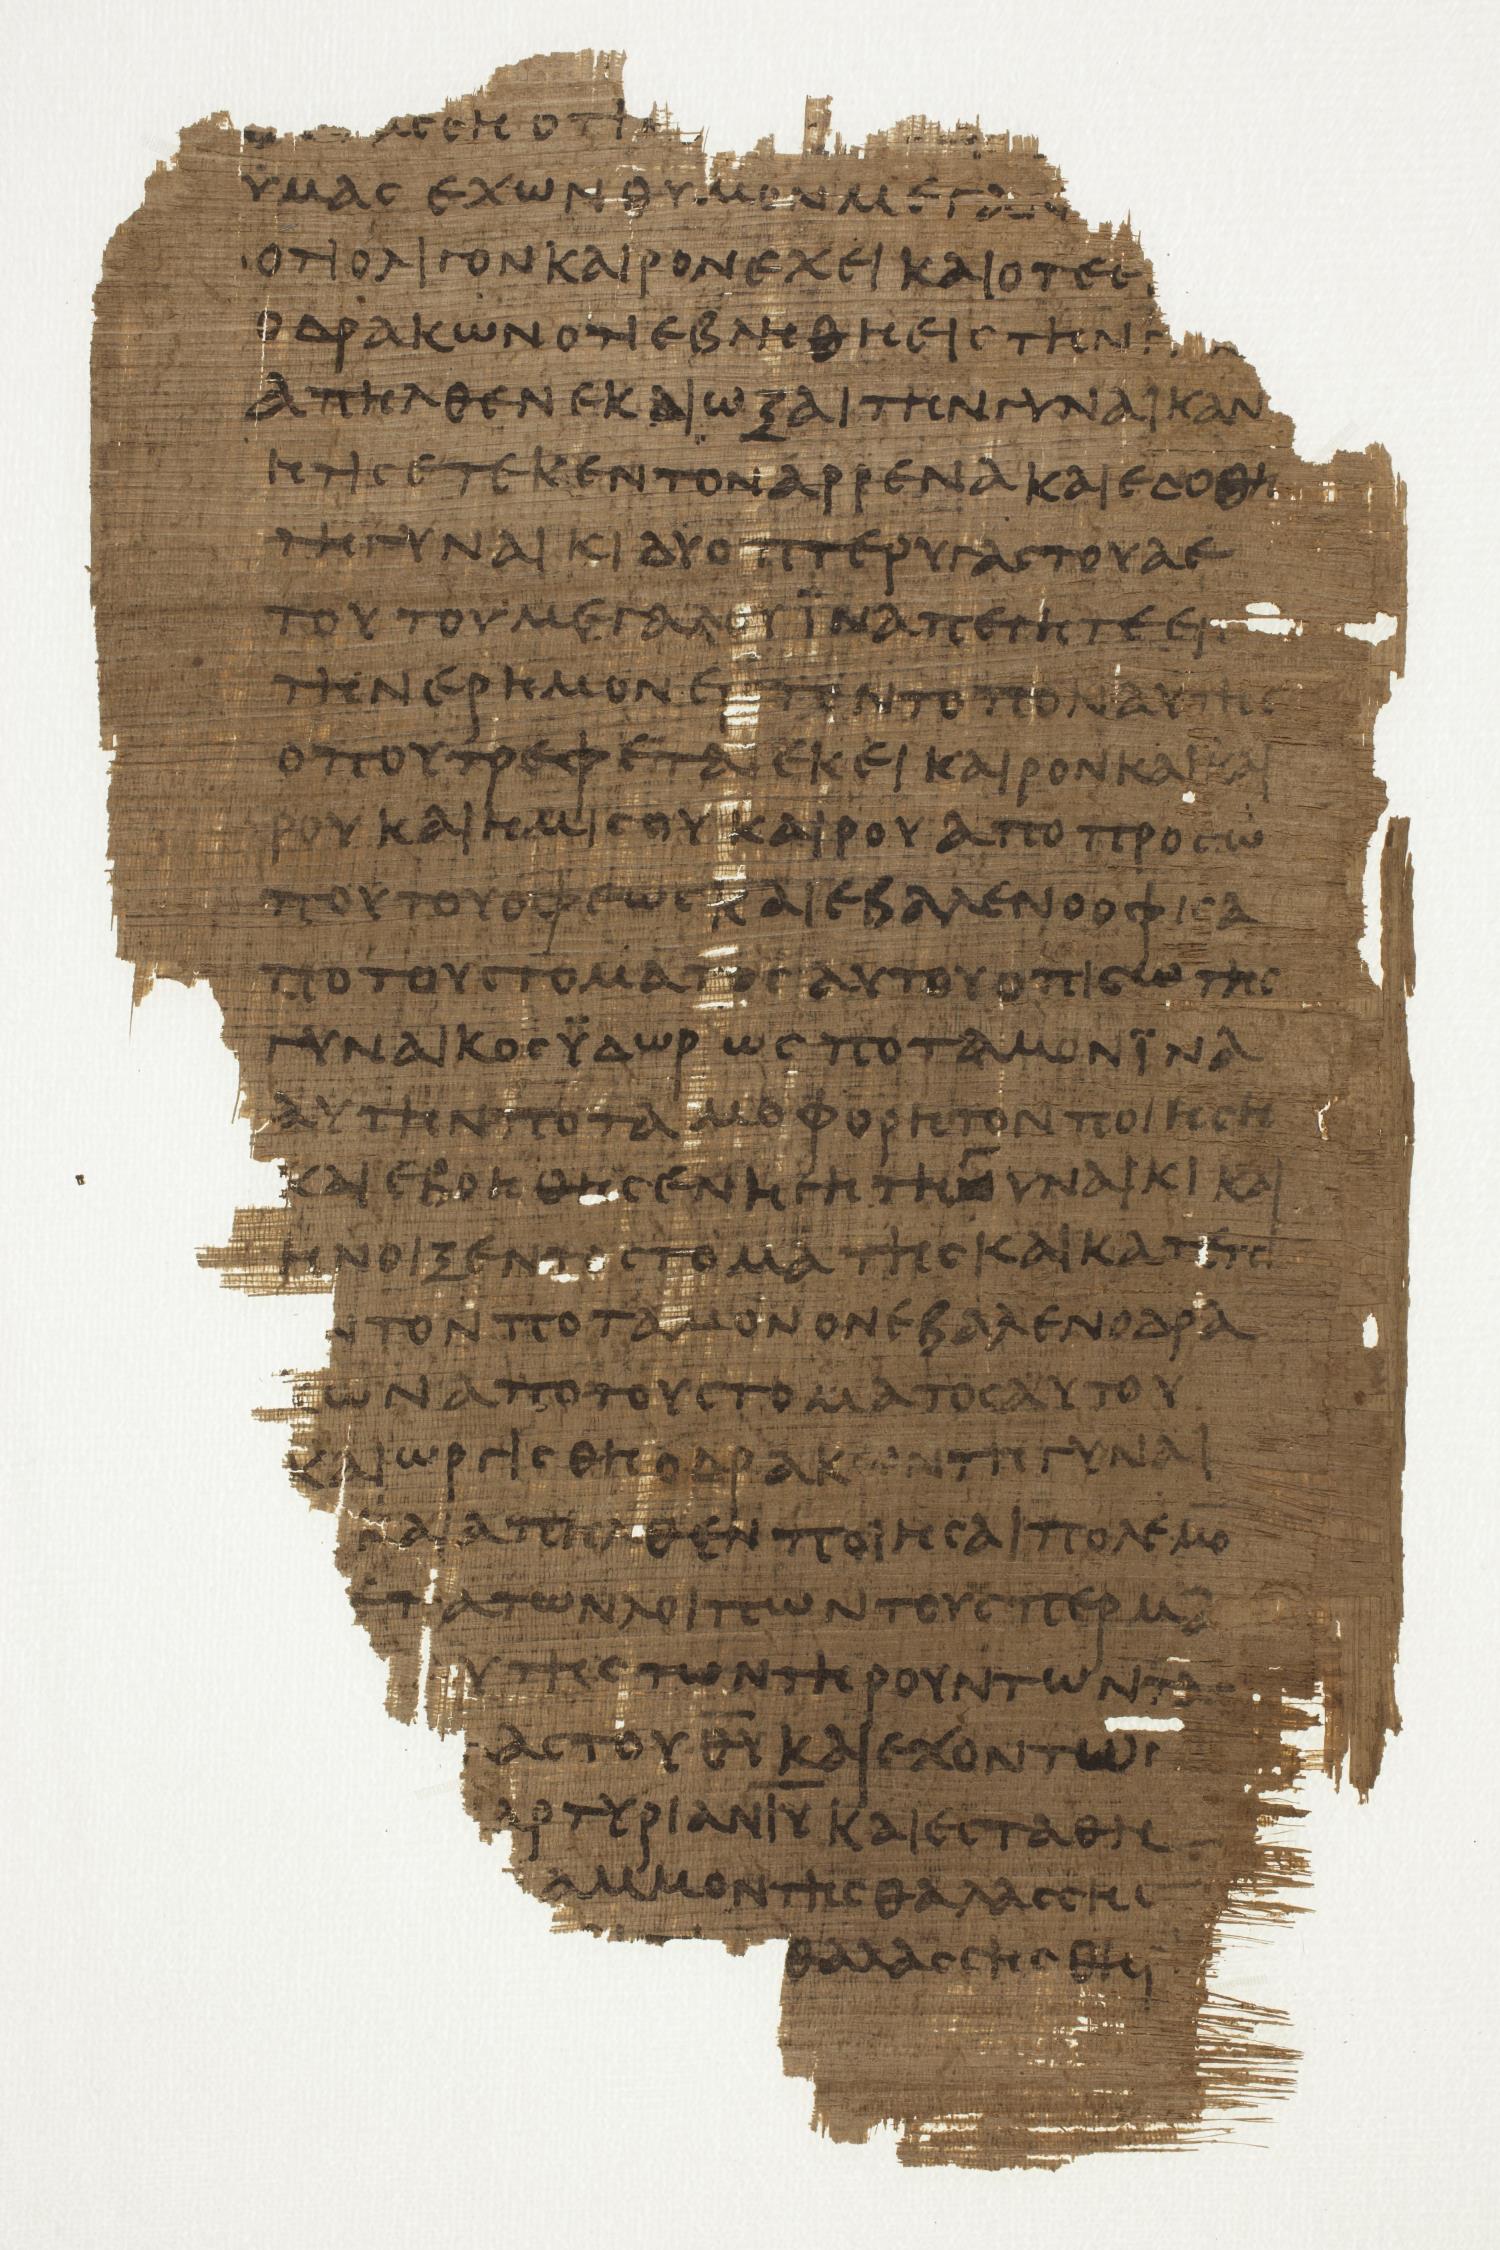 θαλασση οτι
ϋμας εχων θυμον μεγαν
οτι ολιγον καιρον εχει και οτε ε
ο δρακων οτι εβληθη εις την
απηλθεν εκαιωξαι την γυναικαν
ητις ετεκεν τον αρρενα και εδοθη
τη γυναικι δυο πτερυγας του αε
του του μεγαλου ϊνα πεσητε ει
την ερημον εις τον τοπον αυτης
οπου τρεφεται εκει καιρον και και
ρου και ημισου καιρου απο προσω
που του οφεως και εβαλεν ο οφις α
πο του στοματος αυτου οπισω της
γυναικος ϋδωρ ως ποταμον ϊνα
αυτην ποταμοφορητον ποιηση
και εβοηθησεν η γη τη γυναικι και
ηνοιξεν το στομα της και κατεπι
ν τον ποταμον ον εβαλεν ο δρα
κων απο του στοματος αυτου
και ωργισθη ο δρακων τη γυναι
και απηλθεν ποιησαι πολεμο̅
ετα των λοιπων του σπερμα
υτης των τηρουντων τα
ας του θ̅υ̅ και εχοντων
αρτυριαν ι̅υ̅ και εσταθη
αμμον της θαλασσης
θαλασσης θη